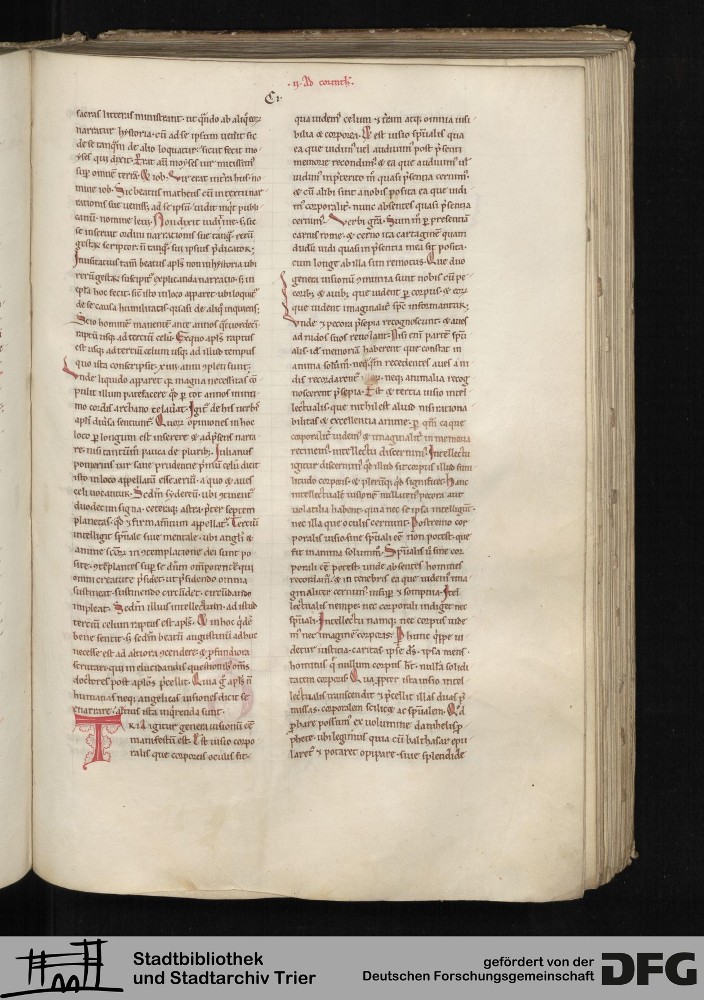 .ij. Ad corinth.
sacras litteras ministrant. ut qndo ab aliq
narratur hystoria. cu ad se ipsum uenit sic
de se tanqm de alio loquatur. sicut fecit mo
yses qui dixit. Erat aut moyses uir mitissim
sup omne terra. & iob. Vir erat in terra hus no
mine iob. Sic beatus matheus cu
rationis sue uenisset ad se ipsu. uidit inqt publi
canu nomine leui. Non dixit uidit me. s; sic
se inseruit ordini narrationis sue tanq; reru
gestar scriptor. n tanq; sui ipsius pdicator.
Inusitatius tam beatus apls non in hystoria ubi
reru gestar suscipit explicanda narratio. s; in
epla hoc fecit. sic isto in loco apparet. ubi loquit
de se causa humilitatis quasi de alio inquiens.
Scio homine ante annos
raptu usq; ad terciu celu. Ergo apls raptus
est usq; ad terciu celum usq; ad illud tempus
quo ista conscripsit. xiiij. anni
Vnde liquido apparet q magna necessitas co
pulit illum patefacere qd p tot annos inti
mo cordis archano celauit. Igit de his uerbis
apli diuersa sentiunt. Quor opiniones in hoc
loco p longum est inserere & ad psens narra
re. nisi tantum pauca de plurib;. Iulianus
pomerius uir sane prudens primu celu dicit
isto in loco appellatu esse aeriu. a quo & aues
celi uocantur. Sedm sydereu. ubi continent
duodecim signa. ceteraq; astra. pter septem
planetas. qd & firmamtum appellat. Terciu
intelligit spuale siue mentale. ubi angli &
anime scor in contemplatione dei sunt po
site. contemplantes sup se dnm omnipotente qui
omni creature psidet. ut psidendo omnia
sustineat. sustinendo circudet. circudando
impleat. Sedm illius intellectum. ad istud
terciu celum raptus est apls. & in hoc qde
bene sentit. s; sedm beatu augustinu adhuc
necesse est ad altiora & profundiora
scrutari. qui in elucidandis questionib; oms
doctores post aplos pcellit. Quia g apls n
humanas neq; angelicas uisiones dicit se
enarrare. altius ista inqrenda sunt.
TRIA igitur genera uisionu ee
manifestu est. Est uisio corpo
ralis que corporeis oculis fit.
qua uidem celum & terram atq; omnia uisi
bilia & corporea. & est uisio spualis qua
ea que uidim uel audiuim post psenti
memorie recondim. & ea que audiuim ul
uidim in pterito m quasi psentia cernim.
& cu alibi sint a nobis posita ea que uidi
m corporalit. nunc absentes quasi psentia
cernim. Verbi gra. Sum m per presentia
carnis rome. & cerno ita cartagine quam
dudu uidi quasi in psentia mea sit posita.
cum longe ab illa sim remotus. Que duo
genera uisionu comunia sunt nobis cu pe
corib; & auib; que uident p corpus. & cor
que uident imaginalit spe informantur.
Vnde & pecora psepia recognoscunt. & aues
ad nidos suos reuolant. Nisi eni parte spu
alis id e memoria haberent que constat in
anima solum. neq; recedentes aues a ni
dis recordarent neq; animalia recog
noscerent psepia. Est & tercia uisio intel
lectualis. que nichil est aliud nisi rationa
bilitas & excellentia anime. p qm ea que
corporalit uidem & imaginalit in memoria
retinem. intellectu discernim. Intellectu
igitur discernim qd illud sit corpus illud simi
litudo corporis. & pleruq; qd significet. Hanc
intellectuale uisione nullatens pecora aut
uolatilia habent. quia nec se ipsa intelligunt.
nec illa que oculis cernunt. Postremo cor
poralis uisio sine spuali ee non potest. que
fit in anima solumm. Spualis u sine cor
porali ee potest. unde absentes homines
recordam. & in tenebris ea que uidem ima
ginaliter cernim insup & somnia. Intel
lectualis nempe nec corporali indiget nec
spuali. Intellectu namq; nec corpus uide
m nec imagine corporis. P hunc qppe ui
detur iusticia. caritas. ipse ds. ipsa mens
hominis q nullum corpus ht. nulla solidi
tatem corporis. Quapropter ista uisio intel
lectualis transcendit & pcellit illas duas p
missas. corporalem scilicet ac spualem. Qd
phare possum ex uolumine danihelis p
phete. ubi legimus quia cu balthasar epu
laret & potaret opipare siue splendide
Stadtbibliothek
und Stadtarchiv Trier
gefördert von der
Deutschen Forschungsgemeinschaft
DFG